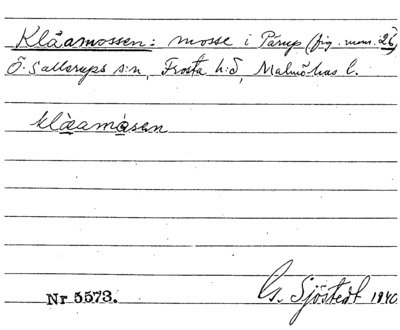 Klåamossen: mosse i Pärup (fig. num. 26)
Ö. Sallerups s:n, Frosta h:d, Malmöhus l.
klåamåsen
Nr 5573.
G. Sjöstedt 1940